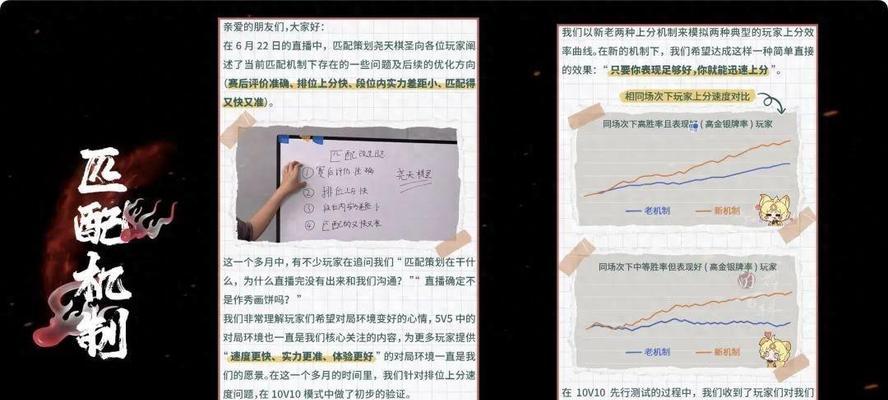 匹配机制
亲爱的朋友们，大家好：
在 6 月 22 日的直播中，匹配策划尧天棋圣向各位玩家阐
述了当前匹配机制下存在的一些问题及后续的优化方向
（赛后评价准确、排位上分快、段位内实力差距小、匹配得
又快又准）。
① 赛后评价准确
尧天棋圣
② 排位上分快
③ 段位内实力差距小
④ 匹配的又快又准
这一个多月中，有不少玩家在追问我们“ 匹配策划在干什
么，为什么直播完没有出来和我们沟通？”“ 直播确定不
是作秀画饼吗？ ”
我们非常理解玩家们希望对局环境变好的心情，5V5 中的
对局环境也一直是我们核心关注的内容，为更多玩家提供
“速度更快、实力更准、体验更好” 的对局环境一直是我
们的愿景。在这一个多月的时间里，我们针对排位上分速
度问题，在 10V10 模式中做了初步的验证。
我们以新老两种上分机制来模拟两种典型的玩家上分效
率曲线。在新的机制下，我们希望达成这样一种简单直接
的效果：“ 只要你表现足够好，你就能迅速上分”。
相同场次下玩家上分速度对比
同场次下高胜率且表现好 ( 高金银牌率 ) 玩家
老机制 新机制
同场次下中等胜率但表现好 ( 高金银牌率 ) 玩家
老机制 新机制
在 10V10 先行测试的过程中，我们收到了玩家们对我们